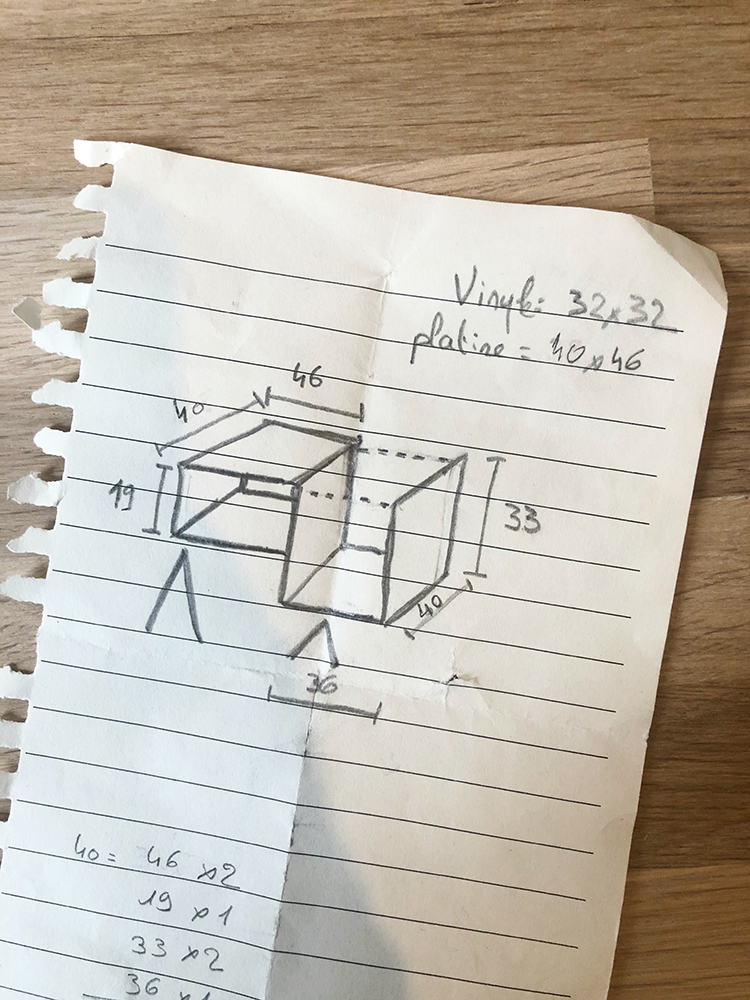 Vinyl: 32x32
platine = 40x46
46
40
19
33
40
36
40 = 46 x2
19 x1
33 x2
36 x1